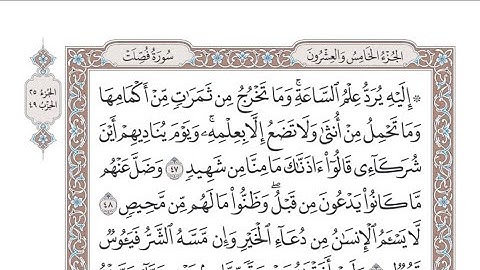 الجُزْءُ الخَامِسُ وَالعِشْرُونَ
سُورَةُ فُصِّلَتْ
الجُزْءُ ٢٥
الحِزْبُ ٤٩
۞ إِلَيْهِ يُرَدُّ عِلْمُ ٱلسَّاعَةِۚ وَمَا تَخْرُجُ مِن ثَمَرَٰتٍ مِّنْ أَكْمَامِهَا
وَمَا تَحْمِلُ مِنْ أُنثَىٰ وَلَا تَضَعُ إِلَّا بِعِلْمِهِۦۚ وَيَوْمَ يُنَادِيهِمْ أَيْنَ
شُرَكَآءِى قَالُوٓا۟ ءَاذَنَّٰكَ مَا مِنَّا مِن شَهِيدٍ ٤٧ وَضَلَّ عَنْهُم
مَّا كَانُوا۟ يَدْعُونَ مِن قَبْلُۖ وَظَنُّوا۟ مَا لَهُم مِّن مَّحِيصٍ ٤٨
لَّا يَسْـَٔمُ ٱلْإِنسَٰنُ مِن دُعَآءِ ٱلْخَيْرِ وَإِن مَّسَّهُ ٱلشَّرُّ فَيَـُٔوسٌ